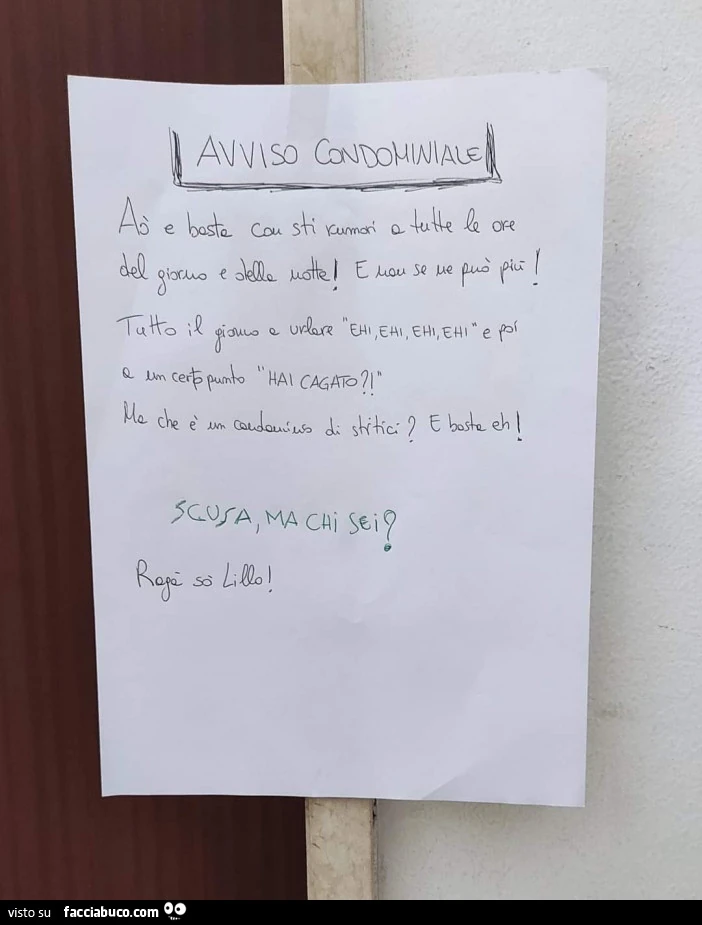 AVVISO CONDOMINIALE
Aò e basta con sti rumori a tutte le ore
del giorno e della notte! E non se ne può più!
Tutto il giorno a urlare "EHI, EHI, EHI, EHI" e poi
a un certo punto "HAI CAGATO?!"
Ma che è un condominio di stitici? E basta eh!
SCUSA, MA CHI SEI?
Ragà sò Lillo!
visto su facciabuco.com